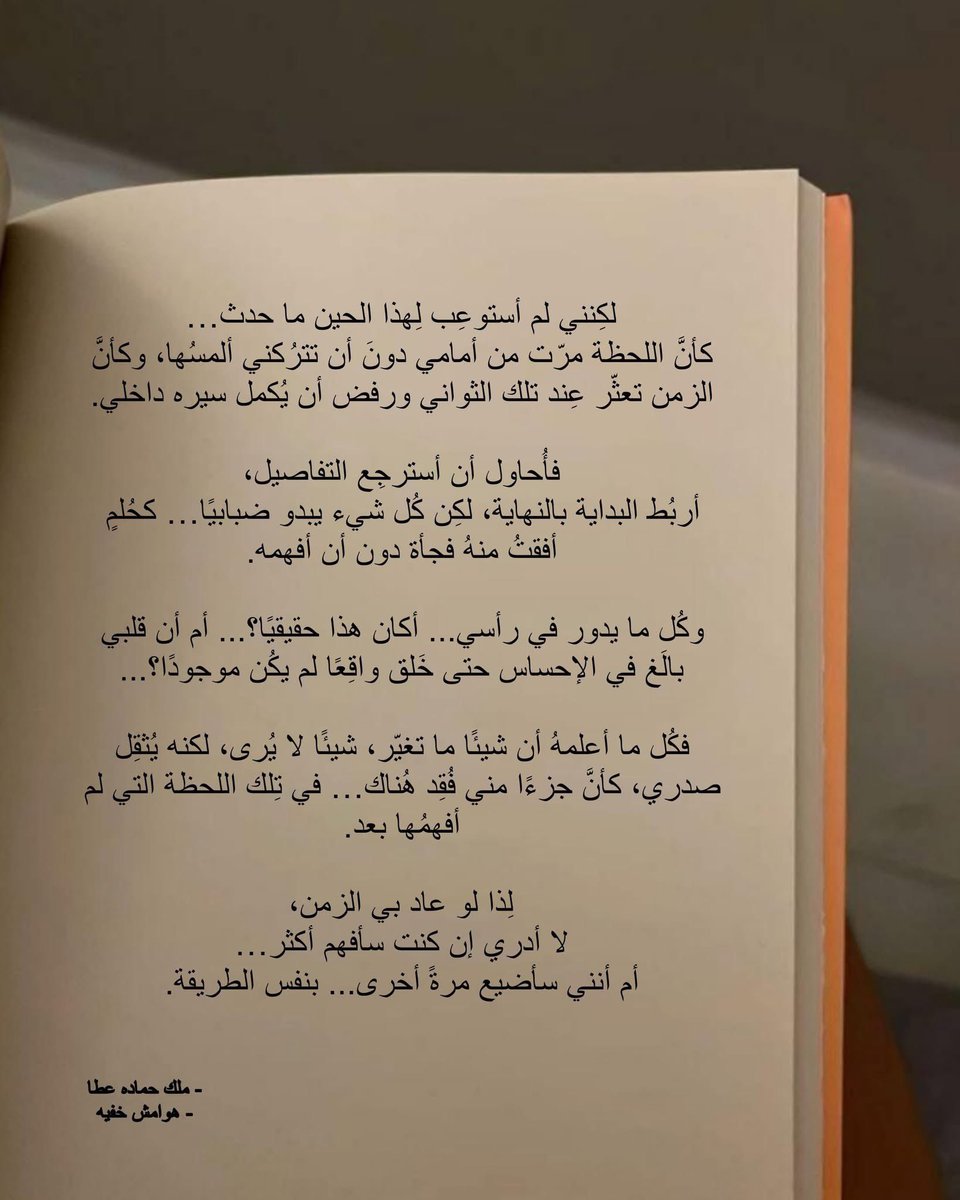 لكِنني لم أستوعِب لِهذا الحين ما حدث...
كأنَّ اللحظة مرّت من أمامي دونَ أن تترُكني ألمسُها، وكأنَّ
الزمن تعثّر عِند تلك الثواني ورفض أن يُكمل سيره داخلي.
فأُحاول أن أسترجِع التفاصيل،
أربُط البداية بالنهاية، لكِن كُل شيء يبدو ضبابيًا... كحُلمٍ
أفقتُ منهُ فجأة دون أن أفهمه.
وكُل ما يدور في رأسي... أكان هذا حقيقيًا؟... أم أن قلبي
بالَغ في الإحساس حتى خَلق واقِعًا لم يكُن موجودًا؟...
فكُل ما أعلمهُ أن شيئًا ما تغيّر، شيئًا لا يُرى، لكنه يُثقِل
صدري، كأنَّ جزءًا مني فُقِد هُناك... في تِلك اللحظة التي لم
أفهمُها بعد.
لِذا لو عاد بي الزمن،
لا أدري إن كنت سأفهم أكثر...
أم أنني سأضيع مرةً أخرى... بنفس الطريقة.
- ملك حماده عطا
- هوامش خفيه